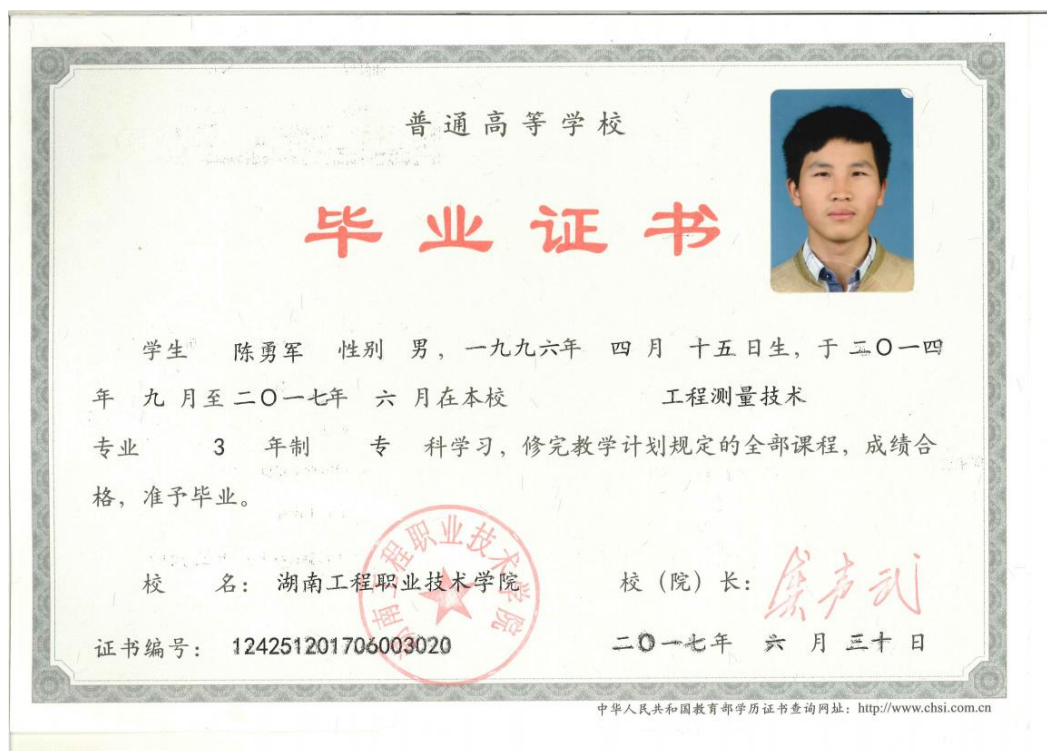 普通高等学校
毕业证书
学生 陈勇军 性别 男，一九九六年 四 月 十五日生，于二〇一四
年 九 月至二〇一七年 六 月在本校 工程测量技术
专业 3 年制 专 科学习，修完教学计划规定的全部课程，成绩合
格，准予毕业。
湖南工程职业技术学院
校 名：湖南工程职业技术学院 校（院）长：
证书编号：124251201706003020 二〇一七年 六 月 三十 日
中华人民共和国教育部学历证书查询网址：http://www.chsi.com.cn